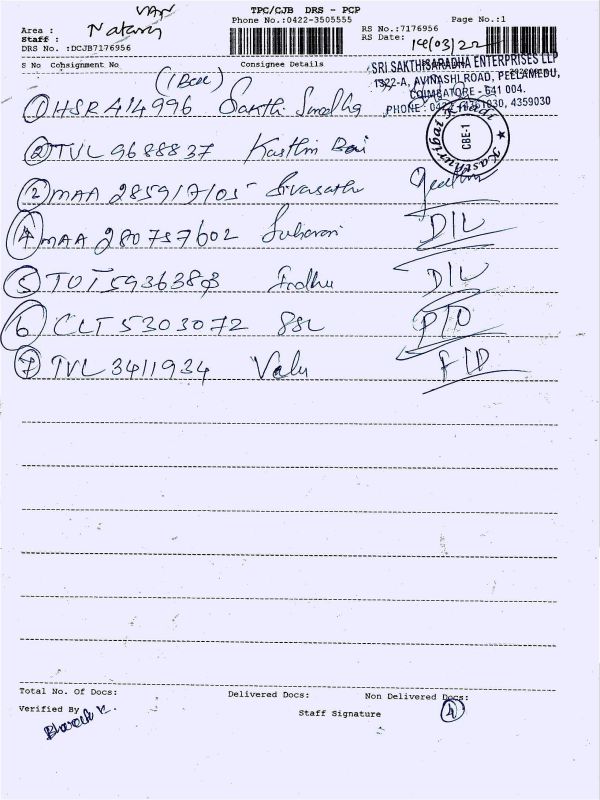 VAN
TPC/CJB DRS - PCP
Phone No.:0422-3505555
Page No.:1
Area :
Staff :
DRS No. :DCJB7176956
RS No.:7176956
RS Date: 14/03/22
S No Consignment No Consignee Details
SRI SAKTHISARADHA ENTERPRISES LLP
1322-A, AVINASHI ROAD, PEELAMEDU,
COIMBATORE - 641 004.
PHONE : 0422 4359030
(1Box)
1 HSR414996 Sakthi Saradha
Kasthuribai Khadi
CBE-1
2 TVL9688837 Kasthuri Bai
2 MAA 285917105 Sivasakthi
4 MAA 280757602 D/L
5 TOT59363883 D/L
6 CLT5303072 SSL P/D
7 TVL3411934 Valu F/D
Total No. Of Docs: Delivered Docs: Non Delivered Docs:
Verified By Staff Signature 4